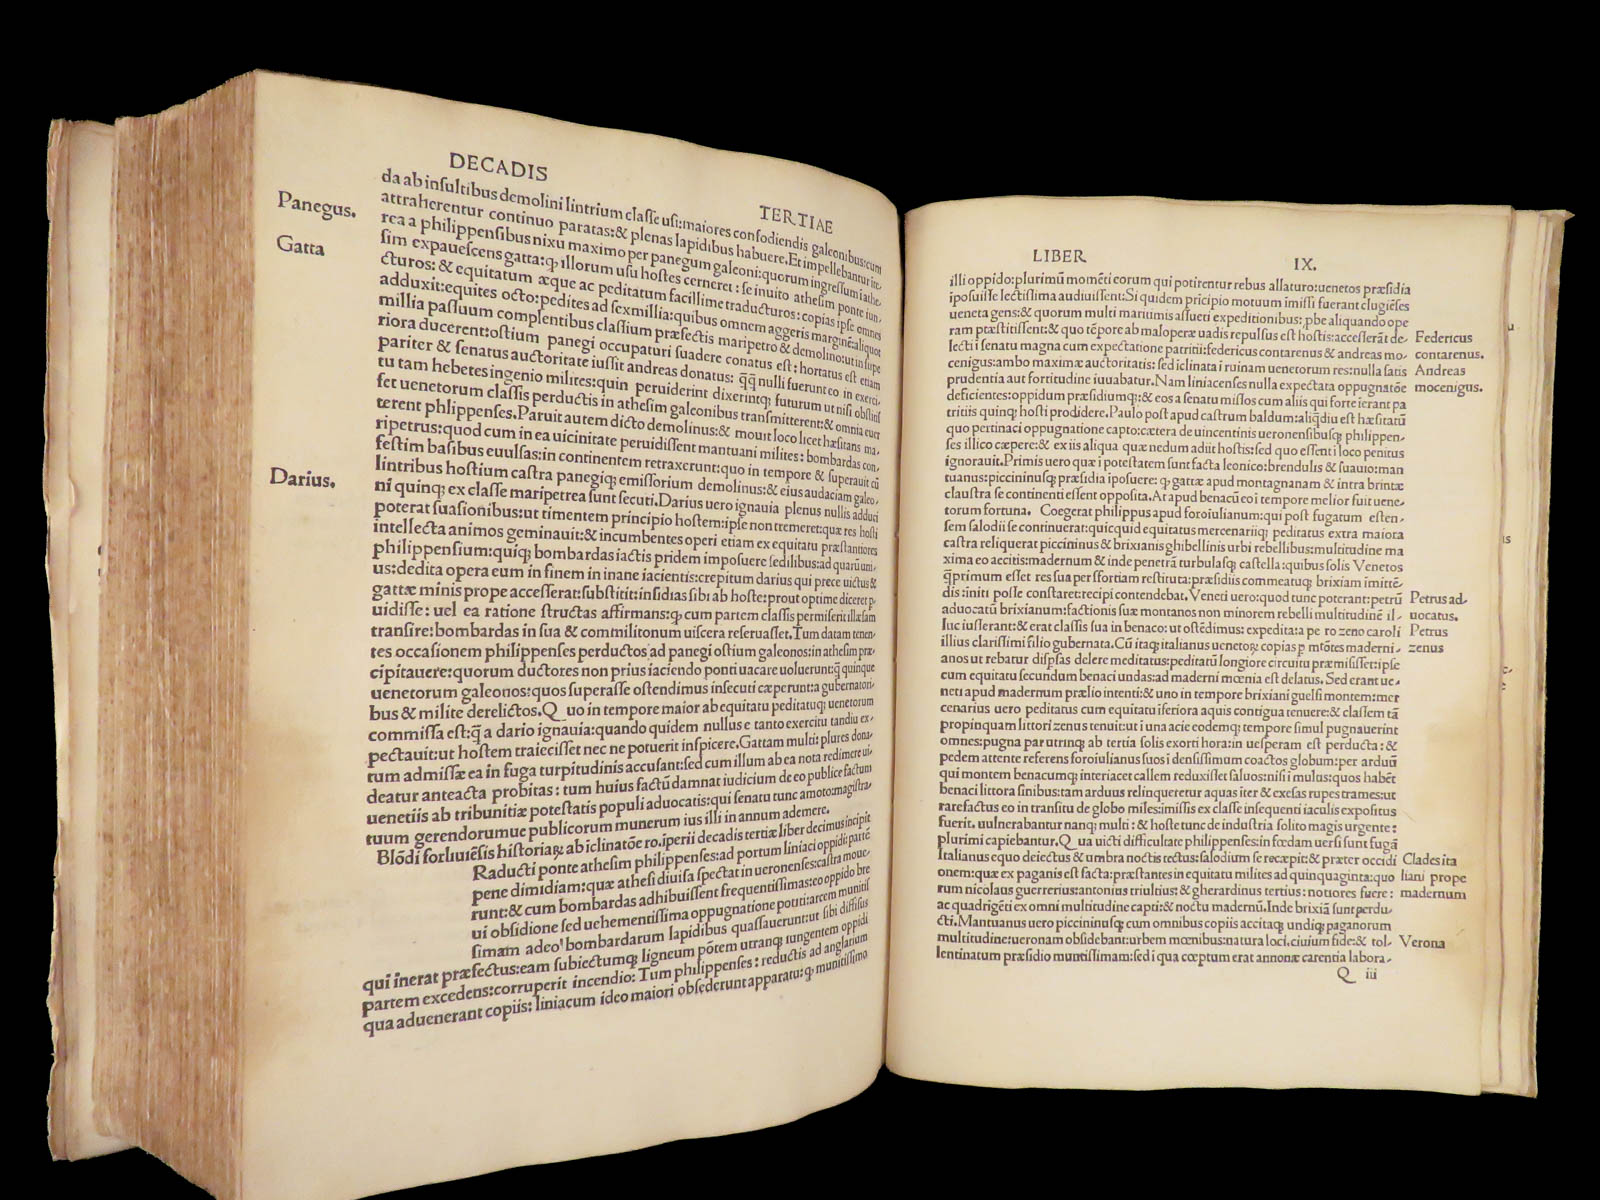 DECADIS TERTIAE
Panegus.
Gatta
Darius.
da ab insultibus demolini lintrium classe usi:maiores confodiendis galeonibus:cum
attraherentur continuo paratas:& plenas lapidibus habuere.Et impellebantur ite,
rea a philippensibus nixu maximo per panegum galeoni:quorum ingressum i athe,
sim expauescens gatta:ꝙ illorum usu hostes cerneret : se inuito athesim ponte iun,
cturos: & equitatum æque ac peditatum facillime traducturos: copias ipse omnei
adduxit:equites octo:pedites ad sexmillia:quibus omnem aggeris marginē:aliquot
millia passuum complentibus classium præfectis maripetro & demolino:ut in supe
riora ducerent:ostium panegi occupaturi suadere conatus est: hortatus est etiam
pariter & senatus auctoritate iussit andreas donatus: ꝗꝗ nulli fuerunt eo in exerci,
tu tam hebetes ingenio milites:quin peruiderint dixerintqȝ futurum ut nisi obsistis
set uenetorum classis perductis in athesim galeonibus transmitterent:& omnia euer
terent phlippenses.Paruit autem dicto demolinus:& mouit loco licet hæsitans ma,
ripetrus:quod cum in ea uicinitate peruidissent mantuani milites: bombardas con,
festim basibus euulsas:in continentem retraxerunt:quo in tempore & superauit cū
lintribus hostium castra panegiqȝ emissorium demolinus:& eius audaciam galeo,
ni quinqȝ ex classe maripetrea sunt secuti.Darius uero ignauia plenus nullis adduci
poterat suasionibus:ut timentem principio hostem:ipse non tremeret:quæ res hosti
intellecta animos geminauit:& incumbentes operi etiam ex equitatu præstantiores
philippensium:quiqȝ bombardas iactis pridem imposuere sedilibus:ad quarū uni,
us:dedita opera eum in finem in inane iacientis:crepitum darius qui prece uictus &
gattæ minis prope accesserat:substitit:insidias sibi ab hoste:prout optime diceret p,
uidisse: uel ea ratione structas affirmans:ꝙ cum partem classis permiserit illæsam
transire:bombardas in sua & commilitonum uiscera reseruasset.Tum datam tenen,
tes occasionem philippenses perductos ad panegi ostium galeonos:in athesim præ,
cipitauere:quorum ductores non prius iaciendo ponti uacare uoluerunt:ꝗ quinque
uenetorum galeonos:quos superasse ostendimus insecuti cæperunt:a gubernatori,
bus & milite derelictos.Q uo in tempore maior ab equitatu peditatuqȝ uenetorum
commissa est:ꝗ a dario ignauia:quando quidem nullus e tanto exercitu tandiu ex,
pectauit:ut hostem traiecisset nec ne potuerit inspicere.Gattam multi: plures dona,
tum admissæ ea in fuga turpitudinis accusant:sed cum illum ab ea nota redimere ui,
deatur anteacta probitas: tum huius factū damnat iudicium de eo publice factum
uenetiis ab tribunitiæ potestatis populi aduocatis:qui senatu tunc amoto:magistra,
tuum gerendorumue publicorum munerum ius illi in annum ademere.
Blōdi forliuiēsis historiaꝝ ab iclinatōe ro.iperii decadis tertiæ liber decimus incipit
Raducti ponte athesim philippenses:ad portum liniaci oppidi partē
pene dimidiam:quæ athesi diuisa spectat in ueronenses:castra moue,
runt:& cum bombardas adhibuissent frequentissimas:eo oppido bre
ui obsidione sed uehementissima oppugnatione potiti:arcem munitis
simam adeo bombardarum lapidibus quassauerunt:ut sibi diffisus
qui inerat præfectus:eam subiectumqȝ ligneum pōtem utranqȝ iungentem oppidi
partem excedens:corruperit incendio: Tum philippenses: reductis ad anglarium
qua aduenerant copiis: liniacum ideo maiori obsederunt apparatu: ꝙ munitissimo
LIBER IX.
illi oppido:plurimū momēti eorum qui potirentur rebus allaturo:uenetos præsidia
iposuisse lectissima audiuissent:Si quidem pricipio motuum imissi fuerant clugiēses
ueneta gens:& quorum multi maritimis assueti expeditionibus: pbe aliquando ope
ram præstitissent:& quo tēpore ab malopera uadis repulsus est hostis:accesserāt de,
lecti i senatu magna cum expectatione patritii:federicus contarenus & andreas mo,
cenigus:ambo maximæ auctoritatis: sed iclinata i ruinam uenetorum res:nulla satis
prudentia aut fortitudine iuuabatur. Nam liniacenses nulla expectata oppugnatōe
deficientes:oppidum præsidiumqȝ:& eos a senatu missos cum aliis qui forte ierant pa
tritiis quinqȝ hosti prodidere. Paulo post apud castrum baldum:aliqdiu est hæsitatū
quo pertinaci oppugnatione capto:cætera de uincentinis ueronensibusqȝ philippen,
ses illico cæpere:& ex iis aliqua quæ nedum adiit hostis:sed quo essent i loco penitus
ignorauit.Primis uero quæ i potestatem sunt facta leonico:brendulis & suauio:man
tuanus:piccininusqȝ præsidia iposuere: ꝙ gattæ apud montagnanam & intra brintæ
claustra se continenti essent opposita. At apud benacū eo i tempore melior fuit uene,
torum fortuna. Coegerat philippus apud foroiulianum:qui post fugatum esten,
sem salodii se continuerat:quicquid equitatus mercenariiqȝ peditatus extra maiora
castra reliquerat piccininus & brixianis ghibellinis urbi rebellibus:multitudine ma
xima eo accitis:madernum & inde penetrā turbulasqȝ castella:quibus solis Venetos
ꝗprimum esset res sua per sfortiam restituta:præsidiis commeatuqȝ brixiam imittē,
dis:initi posse constaret:recipi contendebat. Veneti uero:quod tunc poterant:petrū
aduocatū brixianum:factionis suæ montanos non minorem rebelli multitudinē il,
luc iusserant:& erat classis sua in benaco: ut ostēdimus: expedita:a pe ro zeno caroli
illius clarissimi filio gubernata. Cū itaqȝ italianus uenetoꝝ copias p mōtes maderni,
anos ut rebatur dispsas delere meditatus:peditatū longiore circuitu præmisisset:ipse
cum equitatu secundum benaci undas:ad maderni mœnia est delatus. Sed erant ue,
neti apud madernum prælio intenti:& uno in tempore brixiani guelfi montem:mer
cenarius uero peditatus cum equitatu iferiora aquis contigua tenuere:& classem tā
propinquam littori zenus tenuit:ut i una acie eodemqȝ tempore simul pugnauerint
omnes:pugna par utrinqȝ ab tertia solis exorti hora:in uesperam est perducta: &
pedem attente referens foroiulianus suos i densissimum coactos globum:per arduū
qui montem benacumqȝ interiacet callem reduxisset saluos:nisi i mulus:quos habēt
benaci littora sinibus:tam arduus relinqueretur aquas iter & exesas rupes trames:ut
rarefactus eo in transitu de globo miles:imissis ex classe insequenti iaculis expositus
fuerit. uulnerabantur nanqȝ multi: & hoste tunc de industria solito magis urgente:
plurimi capiebantur.Q ua uicti difficultate philippenses:in fœdam uersi sunt fugā
Italianus equo deiectus & umbra noctis tectus:salodium se recæpit:& præter occidi
onem:quæ ex paganis est facta:præstantes in equitatu milites ad quinquaginta:quo
rum nicolaus guerrerius:antonius triultius:& gherardinus tertius: notiores fuere:
ac quadrigēti ex omni multitudine capti:& noctu madernū. Inde brixiā sunt perdu,
cti. Mantuanus uero piccininusqȝ cum omnibus copiis accitaqȝ undiqȝ paganorum
multitudine:ueronam obsidebant:urbem mœnibus:natura loci, ciuium fide:& tol,
lentinatum præsidio munitissimam:sed i qua cœptum erat annonæ carentia labora,
Q iii
Federicus
contarenus.
Andreas
mocenigus.
Petrus ad,
uocatus.
Petrus
zenus
Clades ita
liani prope
madernum
Verona